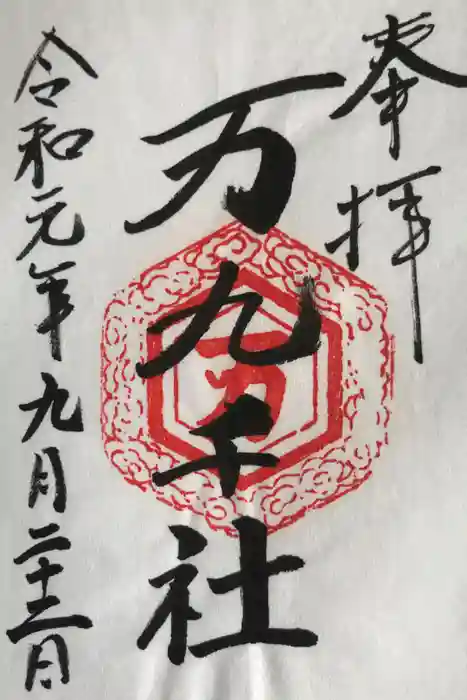 奉拝
万九千社
令和元年九月二十二日
万